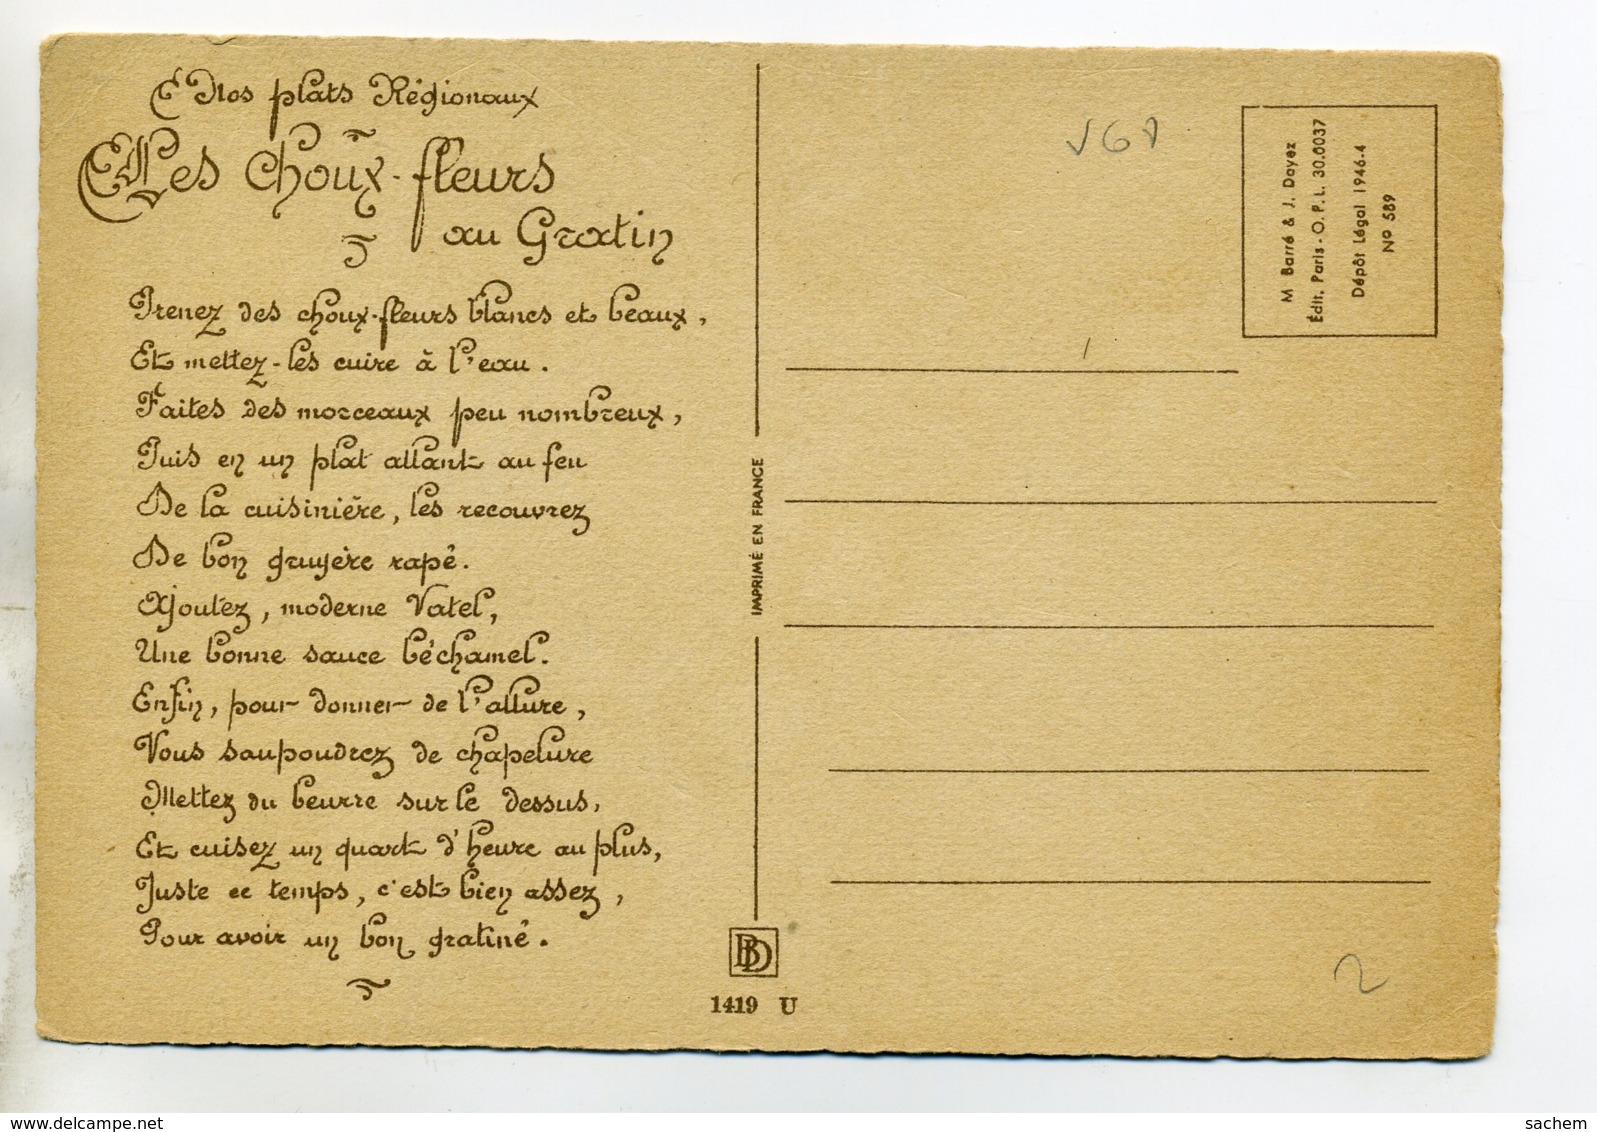 Nos plats Régionaux
Les Choux-fleurs
au Gratin
Prenez des choux-fleurs blancs et beaux,
Et mettez-les cuire à l'eau.
Faites des morceaux peu nombreux,
Puis en un plat allant au feu
De la cuisinière, les recouvrez
De bon gruyère rapé.
Ajoutez, moderne Vatel,
Une bonne sauce béchamel.
Enfin, pour donner de l'allure,
Vous saupoudrez de chapelure
Mettez du beurre sur le dessus,
Et cuisez un quart d'heure au plus,
Juste ce temps, c'est bien assez,
Pour avoir un bon gratiné.
IMPRIMÉ EN FRANCE
BD
1419 U
M Barré & J. Dayez
Édit. Paris - O.P.L. 30.0037
Dépôt Légal 1946-4
Nº 589
2
sachem